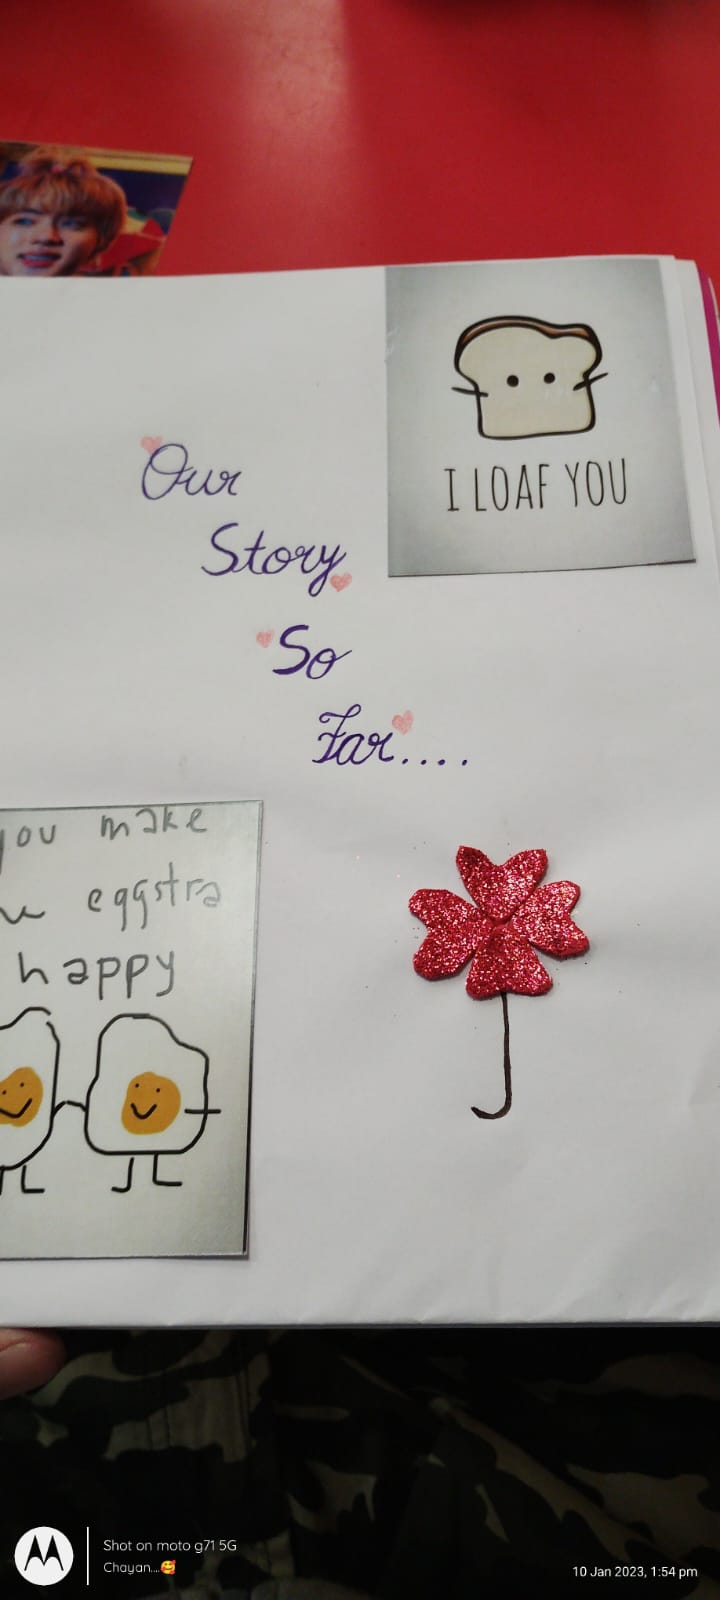 I LOAF YOU
Our
Story
So
Far....
you make
eggstra
happy
Shot on moto g71 5G
Chayan...🥰
10 Jan 2023, 1:54 pm